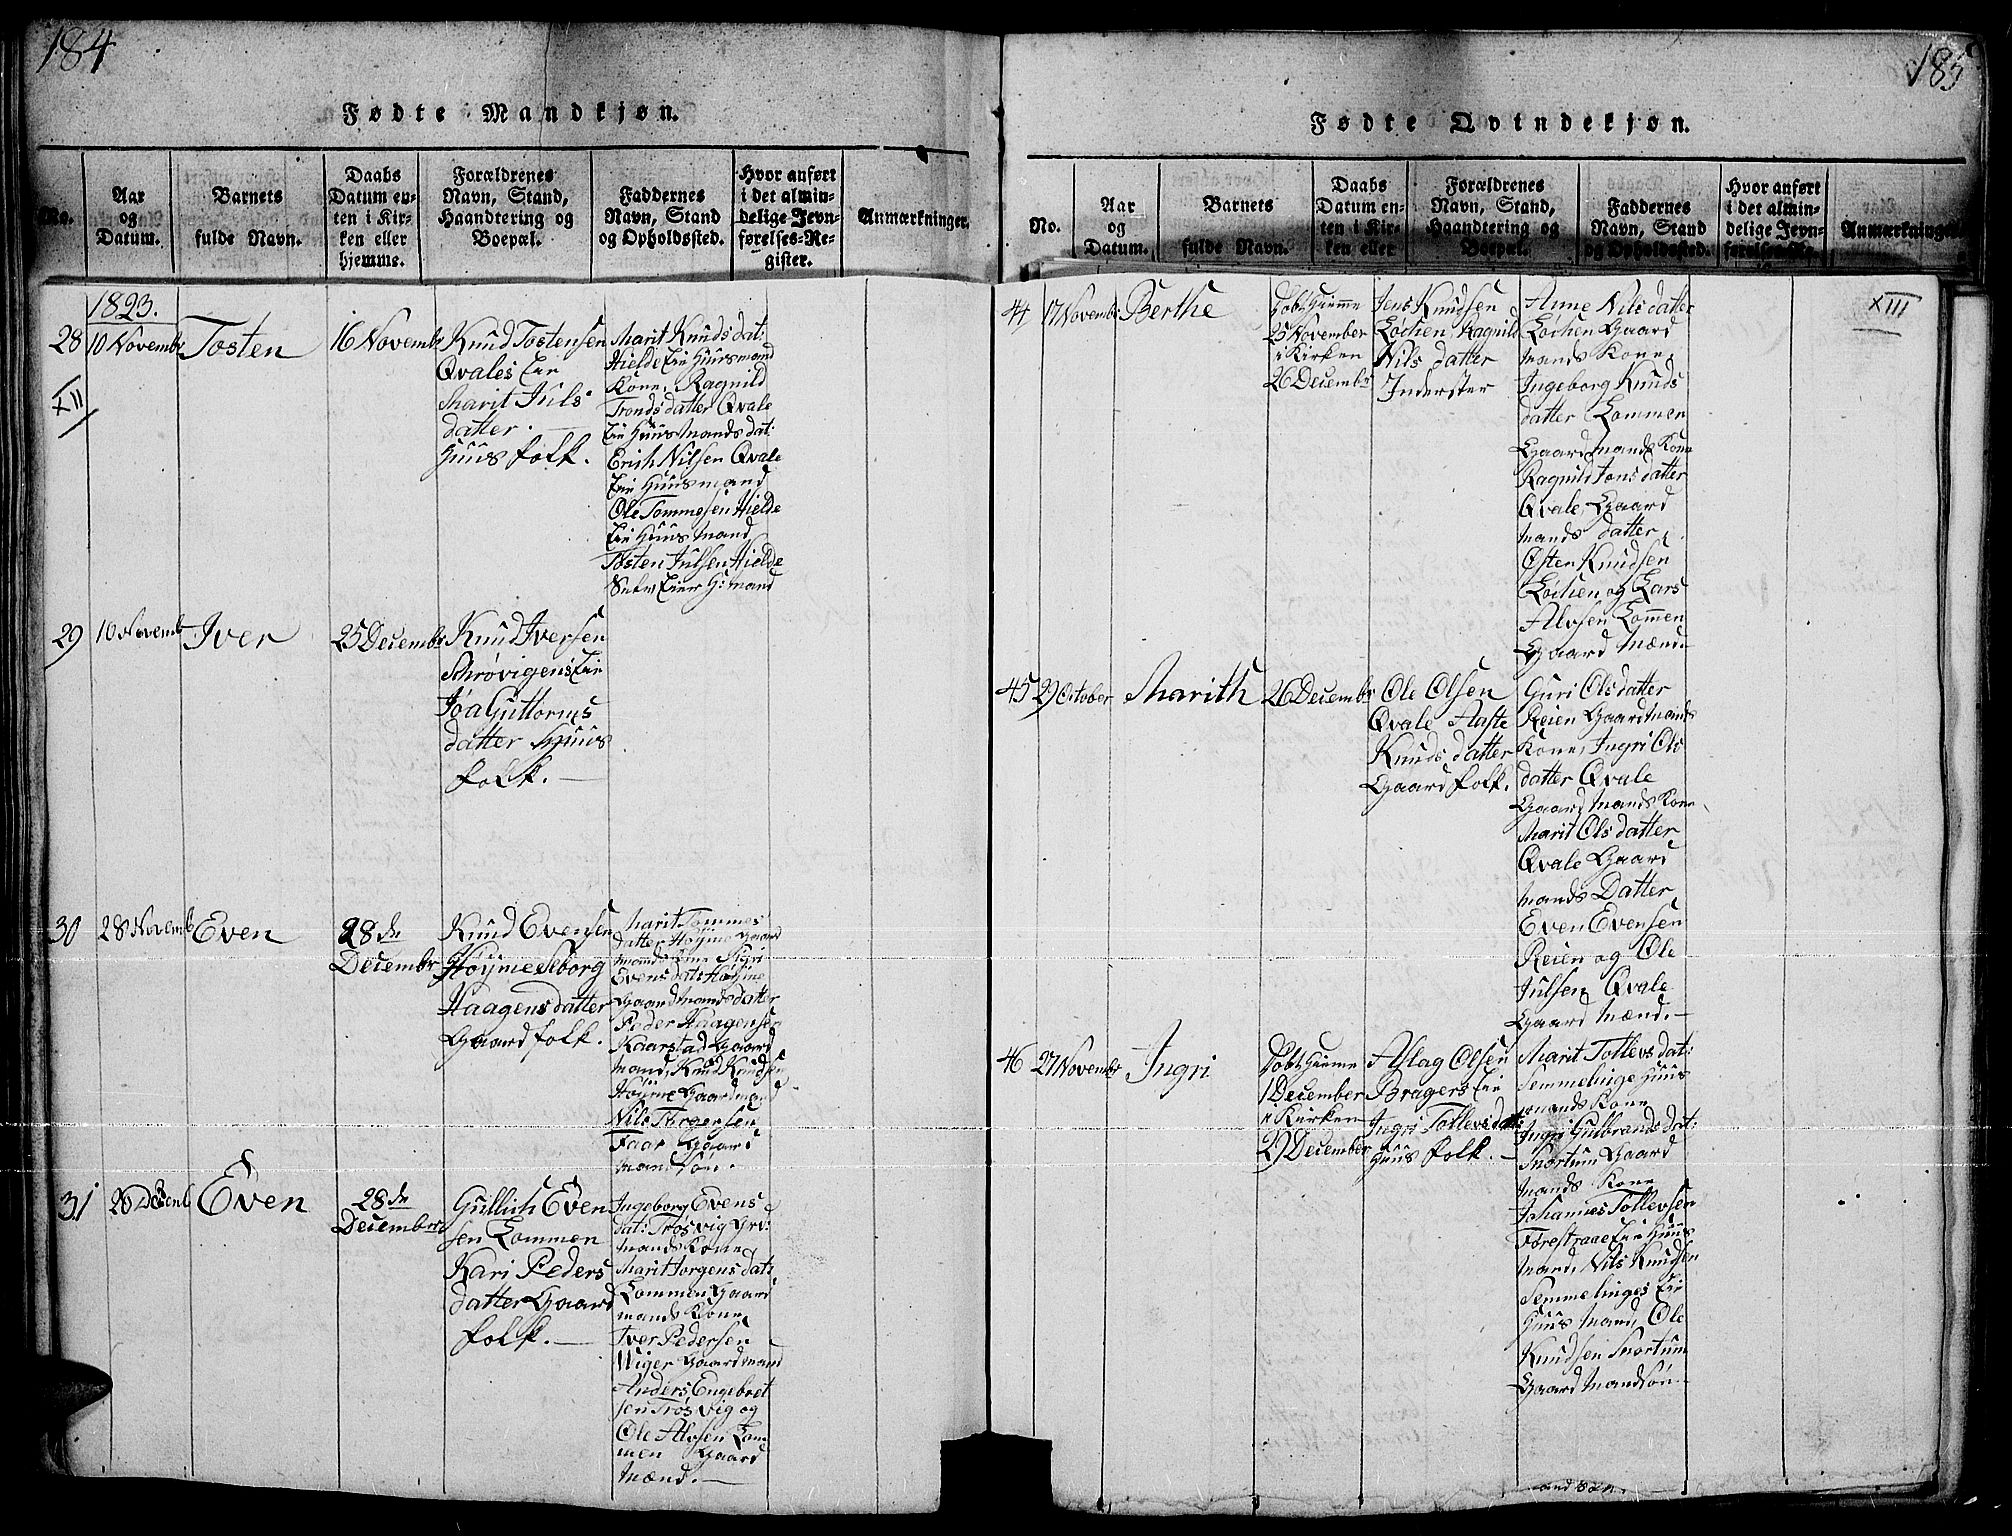 184
Fødte Mandkjøn.
No.
Aar
og
Datum.
Barnets
fulde Navn.
Daabs
Datum en-
ten i Kir-
ken eller
hjemme.
Forældrenes
Navn, Stand,
Haandtering og
Boepæl.
Faddernes
Navn, Stand
og Opholdssted.
Hvor anført
i det almin-
delige Jevn-
førelses-Re-
gister.
Anmærkninger.
1823.
28
XII
10 Novembr
Tosten
16 Novembr
Knud Tostensen
Qvales Eie
Marit Juls
datter.
Huus folk.
Marit Knuds dat:
Hielde Eie Huusmand
Kone, Ragnild
Tronds datter Qvale
Eie Huus Mands dat:
Erich Nilsen Qvale
Eie Huusmand
Ole Tommesen Hielde
Eie Huus Mand
Tosten Julsen Hielde
Eier H: mand
29
10 Novemb
Iver
25 Decembr
Knud Iversen
Schrøvigens Eie
Jøa Guttorms
datter Huus
folk.
30
28 Novemb
Even
28de
Decembr
Knud Evensen
Høyme Seborg
Haagens datter
Gaard folk.
Marit Tommes
datter Høyme Gaard
mands Kone Sigri
Evens dat: Høyme
Gaard Mands datter
Peder Haagensen
Kaarstad Gaard
mand, Knud Knudsen
Høyme Gaardmand
Nils Torgersen
Faar Gaard
mand søn.
31
26 Decemb
Even
28de
Decembr
Gullich Even
sen Lommen
Kari Peders
datter Gaard
folk.
Ingeborg Evens
dat: Trøsvig Grd:
mands Kone
Marit Jorgens dat:
Lommen Gaard
mands Kone
Iver Pedersen
Wiger Gaardmand
Anders Engebret
sen Trøsvig og
Ole Alvsen Lom
men Gaard
Mænd.
185
Fødte Qvindekjøn.
No.
Aar
og
Datum.
Barnets
fulde Navn.
Daabs
Datum en-
ten i Kir-
ken eller
Forældrenes
Navn, Stand,
Haandtering og
Boepæl.
Faddernes
Navn, Stand
og Opholdssted.
Hvor anført
i det almin-
delige Jevn-
førelses-Re-
Anmærkninger.
XIII
44
17 Novembr
Berthe
Døbt Hiemme
25 November
i Kirken
26 Decembr
Jens Knudsen
Lochen Ragnild
Nils datter
Inderster
Anne Nils datter
Lochen Gaard
mands Kone,
Ingeborg Knuds
datter Lommen
Gaard Mands Kone
Ragnild Jons datter
Qvale, Gaard
mands datter,
Østen Knudsen
Lochen og Lars
Alvsen Lommen
Gaard Mænd.
45
29 October
Marith
26 Decembr
Ole Olsen
Qvale Aaste
Knuds datter
Gaard folk.
Guri Ols datter
Reien Gaard Mands
Kone, Ingri Ols
datter Qvale
Gaard Mands Kone
Marit Ols datter
Qvale Gaard
mands Datter
Even Evensen
Reien og Ole
Julsen Qvale
Gaard Mænd.
46
27 Novembr
Ingri
Døbt Hiemme
1 December
i Kirken
29 December
Aslag Olsen
Bragers Eie
Ingri Tollevs dat:
Huus folk.
Marit Tollevs dat:
Semmelinge Huus
mands Kone
Ingri Gulbrands dat:
Snortum Gaard
Mands Kone
Johannes Tollevsen
Forestraae Eie Huus
Mand, Nils Knudsen
Semmelinges Eie
Huus Mand, Ole
Knudsen Snortum
Gaard Mandsøn.